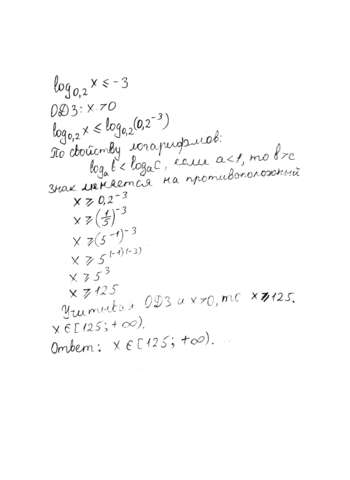 log₀,₂ x ≤ -3
ОДЗ: x > 0
log₀,₂ x ≤ log₀,₂(0,2⁻³)
По свойству логарифмов:
logₐb < logₐc, если a<1, то b>c
Знак меняется на противоположный
x ⩾ 0,2⁻³
x ⩾ (1/5)⁻³
x ⩾ (5⁻¹)⁻³
x ⩾ 5⁽⁻¹⁾⁽⁻³⁾
x ⩾ 5³
x ⩾ 125
Учитывая ОДЗ и x>0, то x ⩾ 125.
x ∈ [125; +∞).
Ответ: x ∈ [125; +∞).